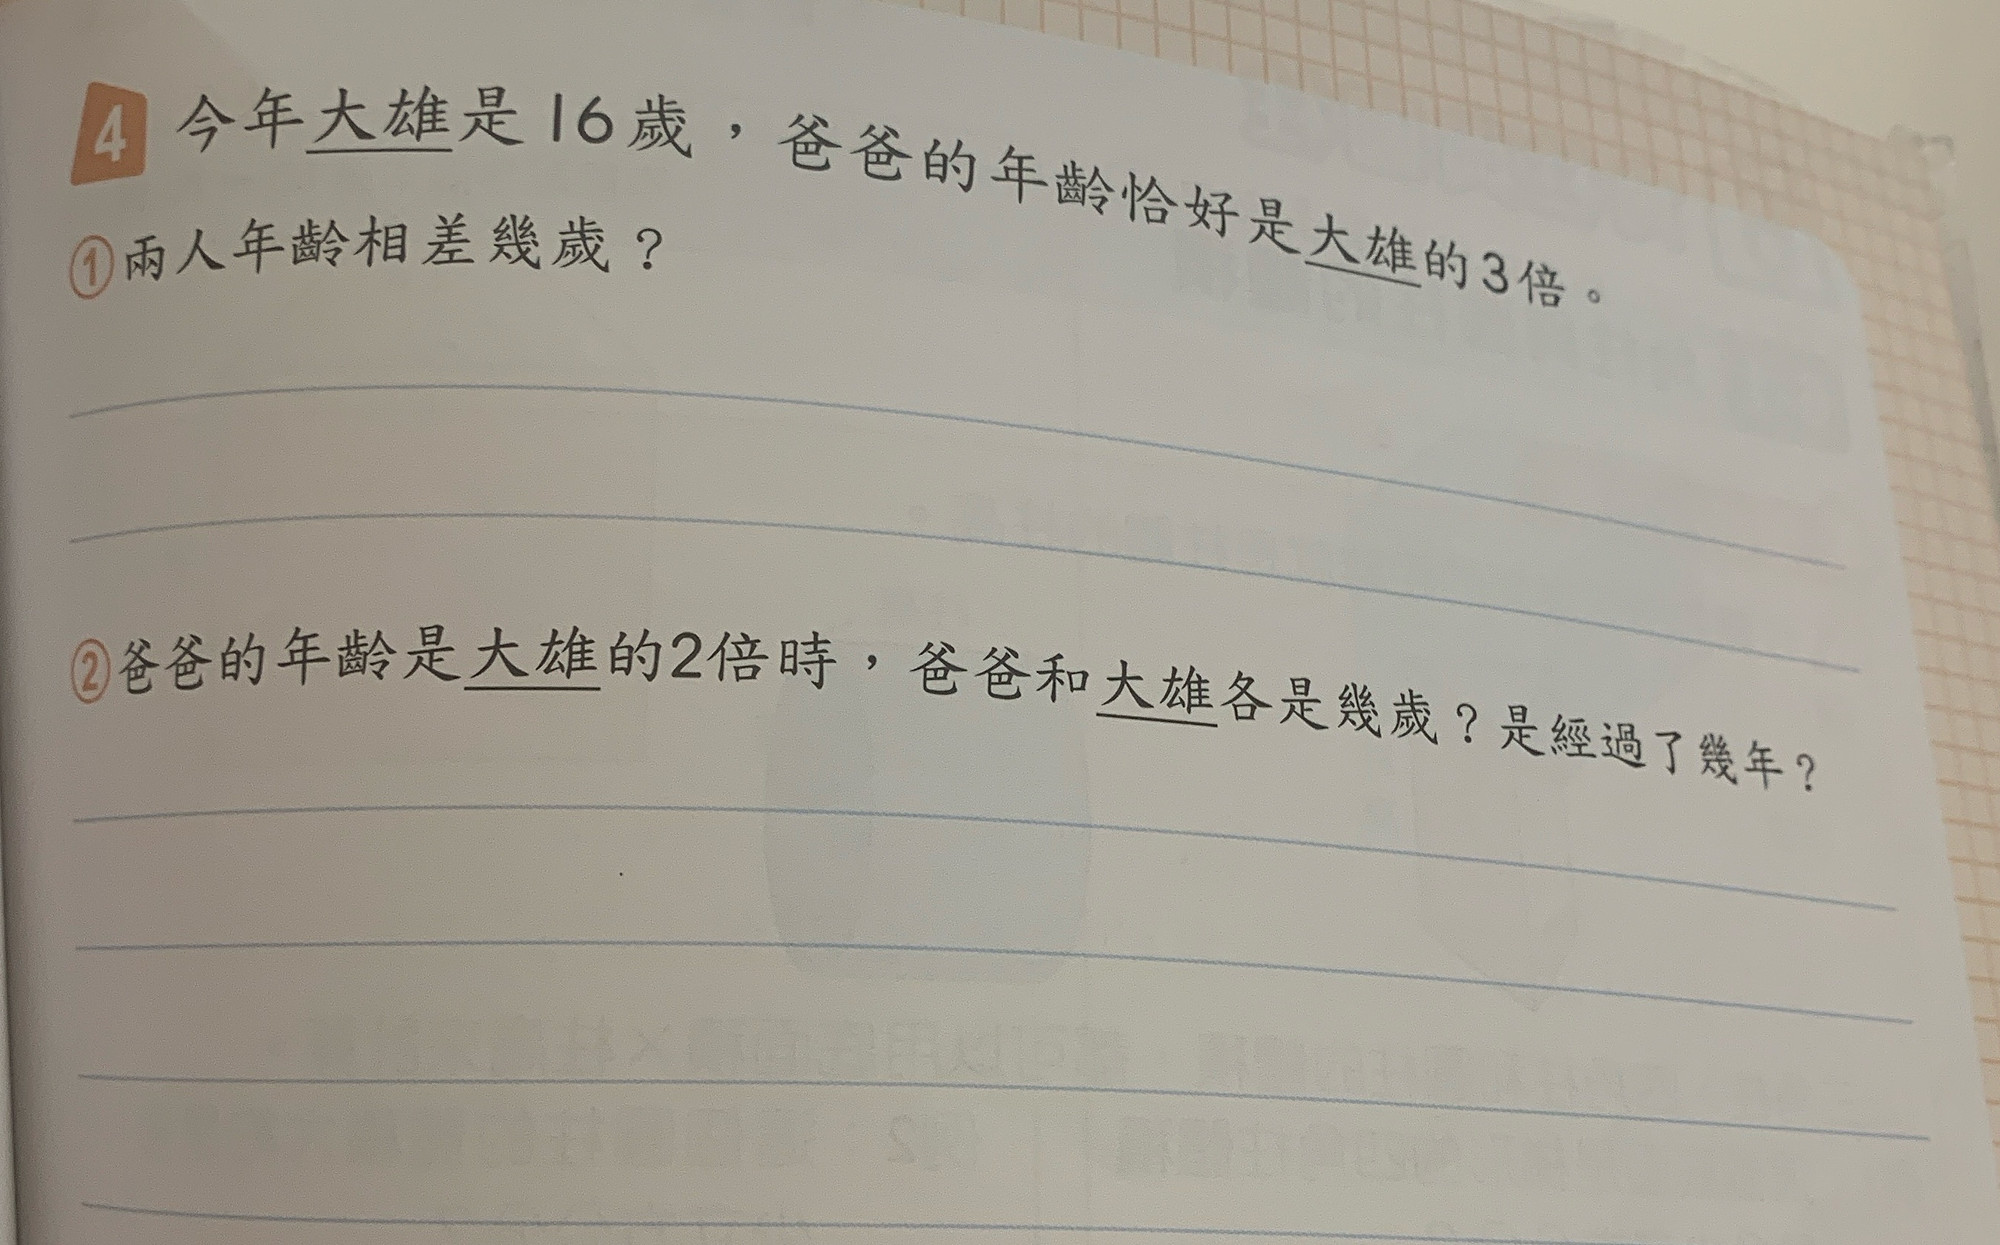 4 今年大雄是16歲，爸爸的年齡恰好是大雄的3倍。
①兩人年齡相差幾歲？
②爸爸的年齡是大雄的2倍時，爸爸和大雄各是幾歲？是經過了幾年？